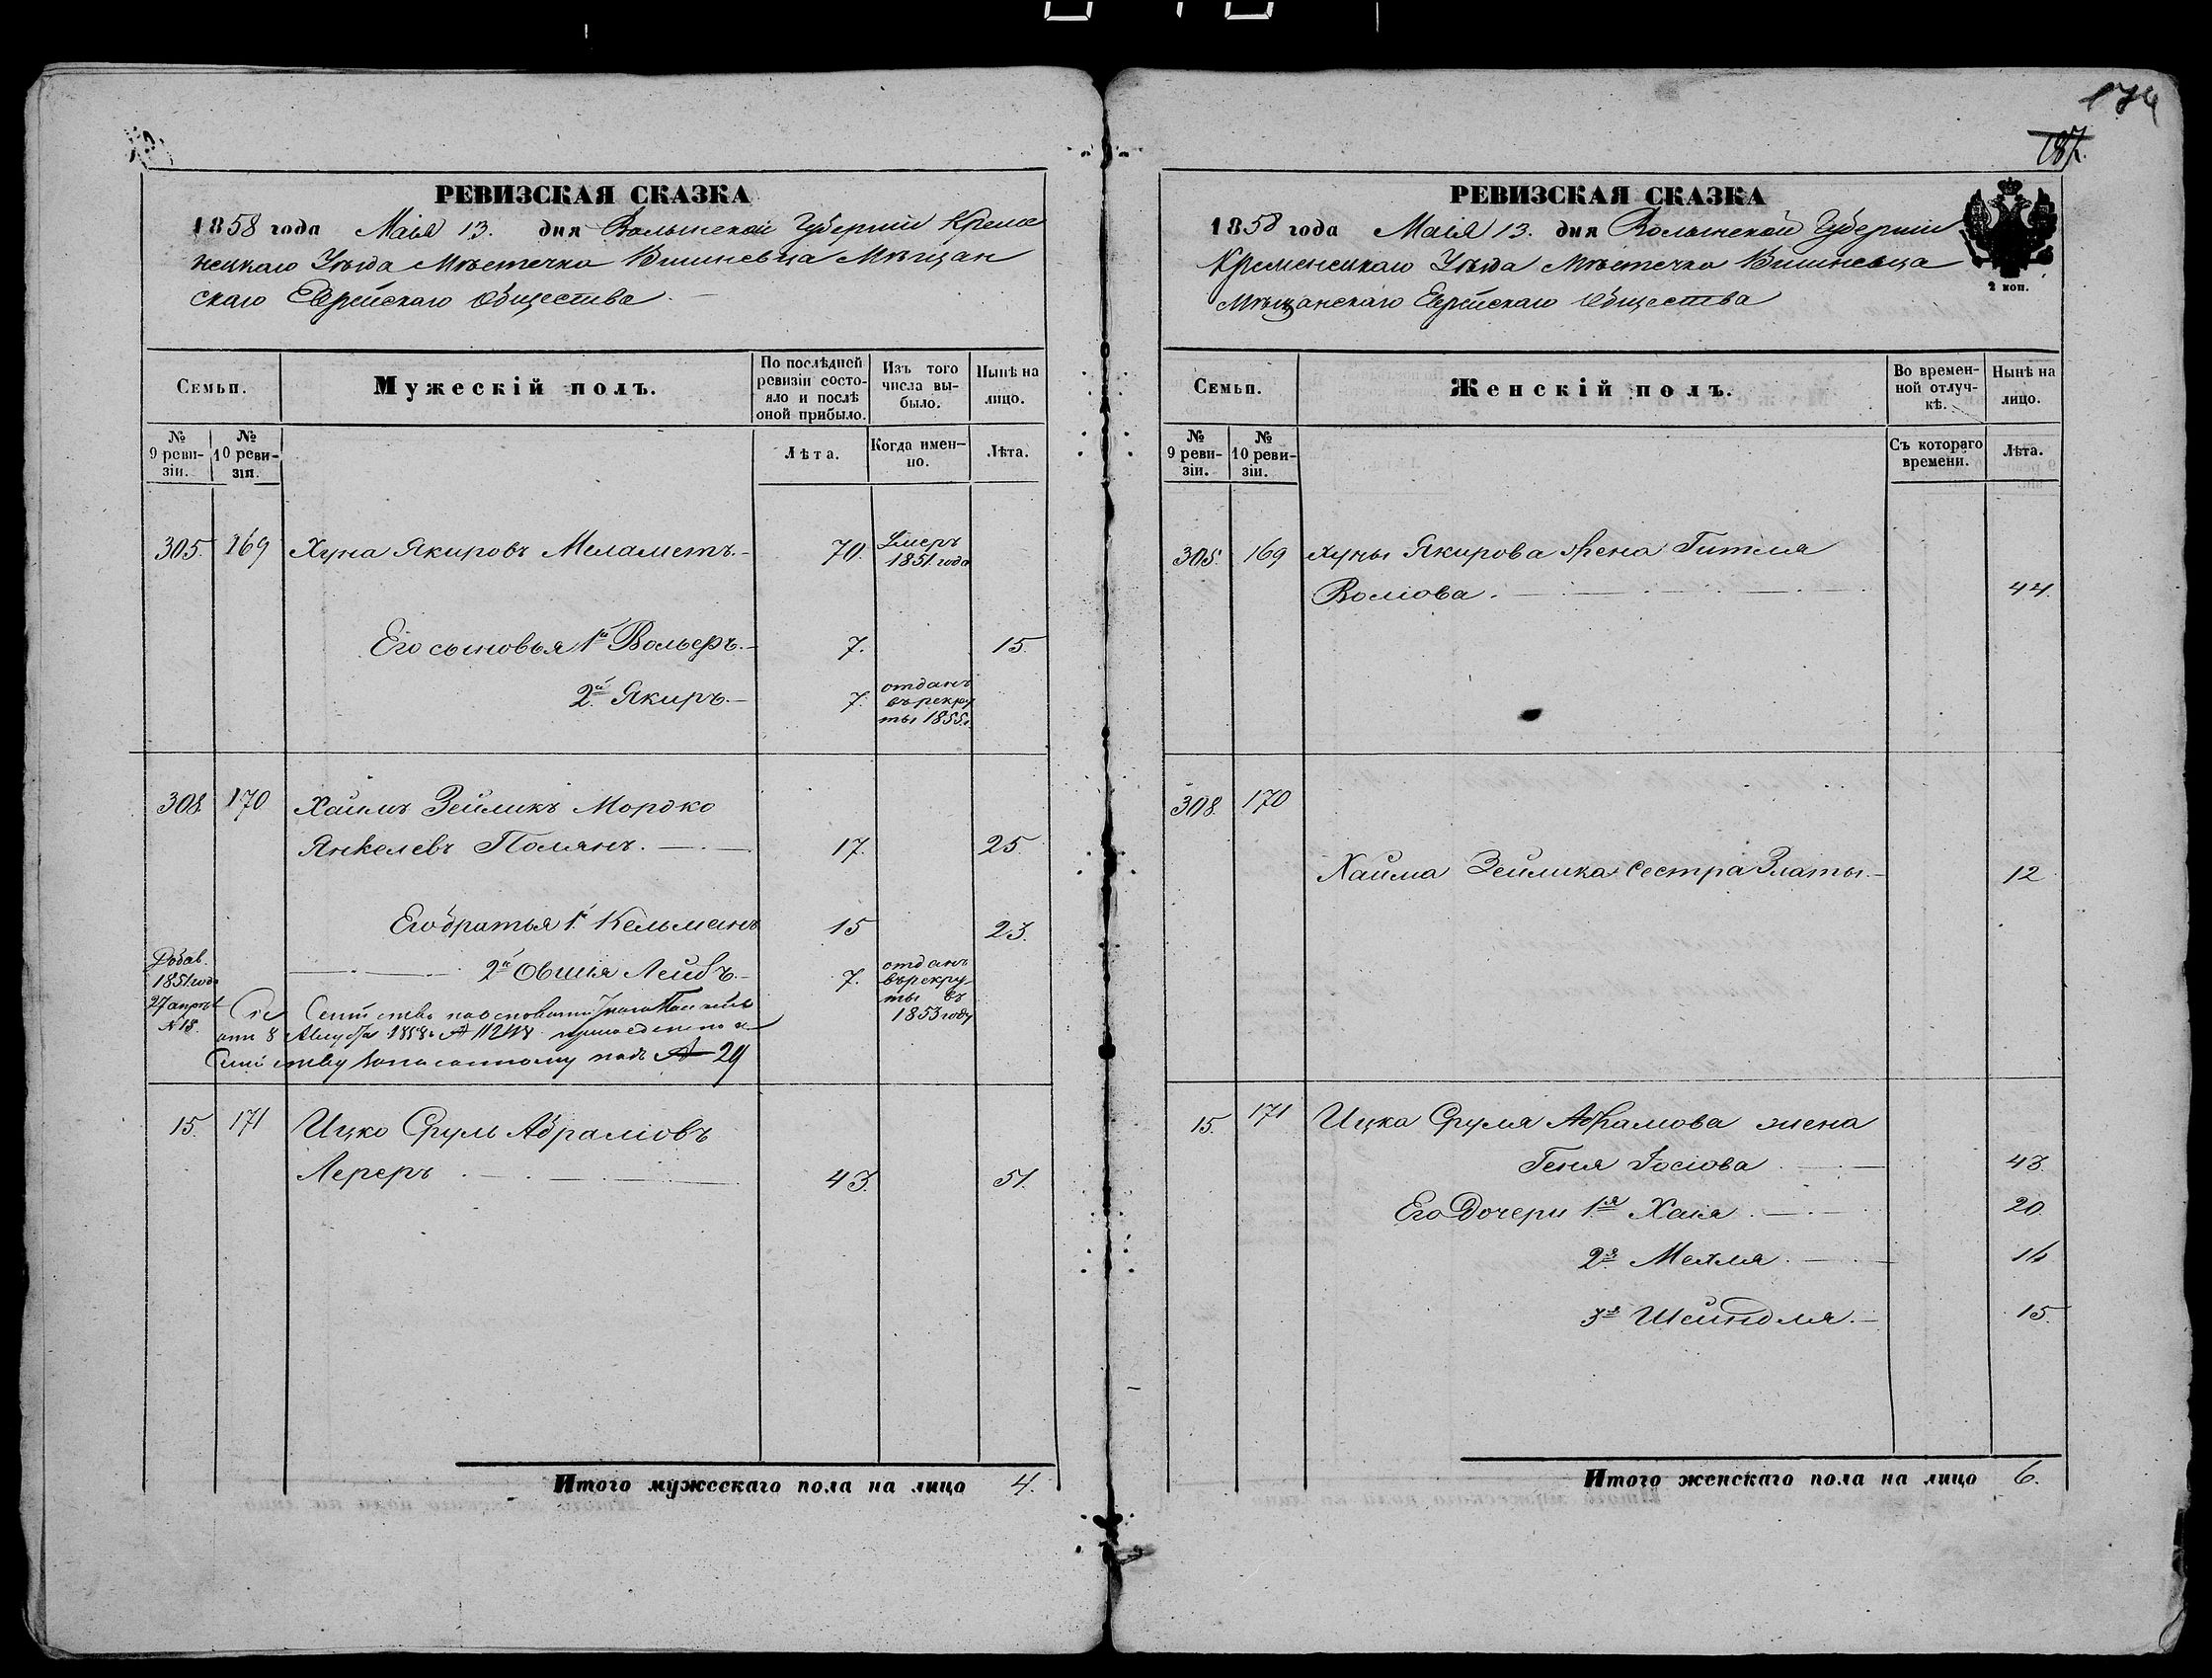 РЕВИЗСКАЯ СКАЗКА
1858 года Маія 13. дня Волынской Губерніи Креме
нецкаго Уѣзда Мѣстечка Вишневца Мѣщан
скаго Еврейскаго Общества
Семьи.
Мужескій полъ.
По послѣдней ревизіи состо-
яло и послѣ оной прибыло.
Изъ того числа вы-
было.
Нынѣ на лицо.
№ 9 реви-
зіи.
№ 10 реви-
зіи.
Лѣта.
Когда имен-
но.
Лѣта.
305. 169 Хуна Якировъ Меламетъ. 70. Умеръ
1851 года
Его сыновья 1й Вольфъ. 7. 15.
2й Якиръ. 7. отданъ
въ рекру
ты 1855г.
308 170 Хаимъ Зейликъ Мордко
Янкелевъ Полянъ. 17. 25.
Его братья 1й Кельманъ 15 23.
Добав.
1851 года
27 апрѣл
№ 18.
2й Овшія Лейбъ. 7. отданъ
въ рекру-
ты въ
1853 году
Сіе Семейство на основаніи
отъ 8 1858г. №
Семейству записанному подъ № 29
15. 171 Ицко Сруль Абрамовъ
Лереръ 43. 51.
Итого мужескаго пола на лицо 4.
174
187.
РЕВИЗСКАЯ СКАЗКА
2 коп.
1858 года Маія 13. дня Волынской Губерніи
Кременецкаго Уѣзда Мѣстечка Вишневца
Мѣщанскаго Еврейскаго Общества
Семьи.
Женскій полъ.
Во времен-
ной отлуч-
кѣ.
Нынѣ на лицо.
№ 9 реви-
зіи.
№ 10 реви-
зіи.
Съ котораго времени.
Лѣта.
305. 169 Хуны Якирова жена Гитля
Волiова. 44.
308. 170
Хаима Зейлика сестра Златы. 12
15. 171 Ицка Сруля Абрамова жена
Геня Іосіова 43.
Его Дочери 1я Хая 20.
2я Мехля 16
3я Шейндля. 15.
Итого женскаго пола на лицо 6.